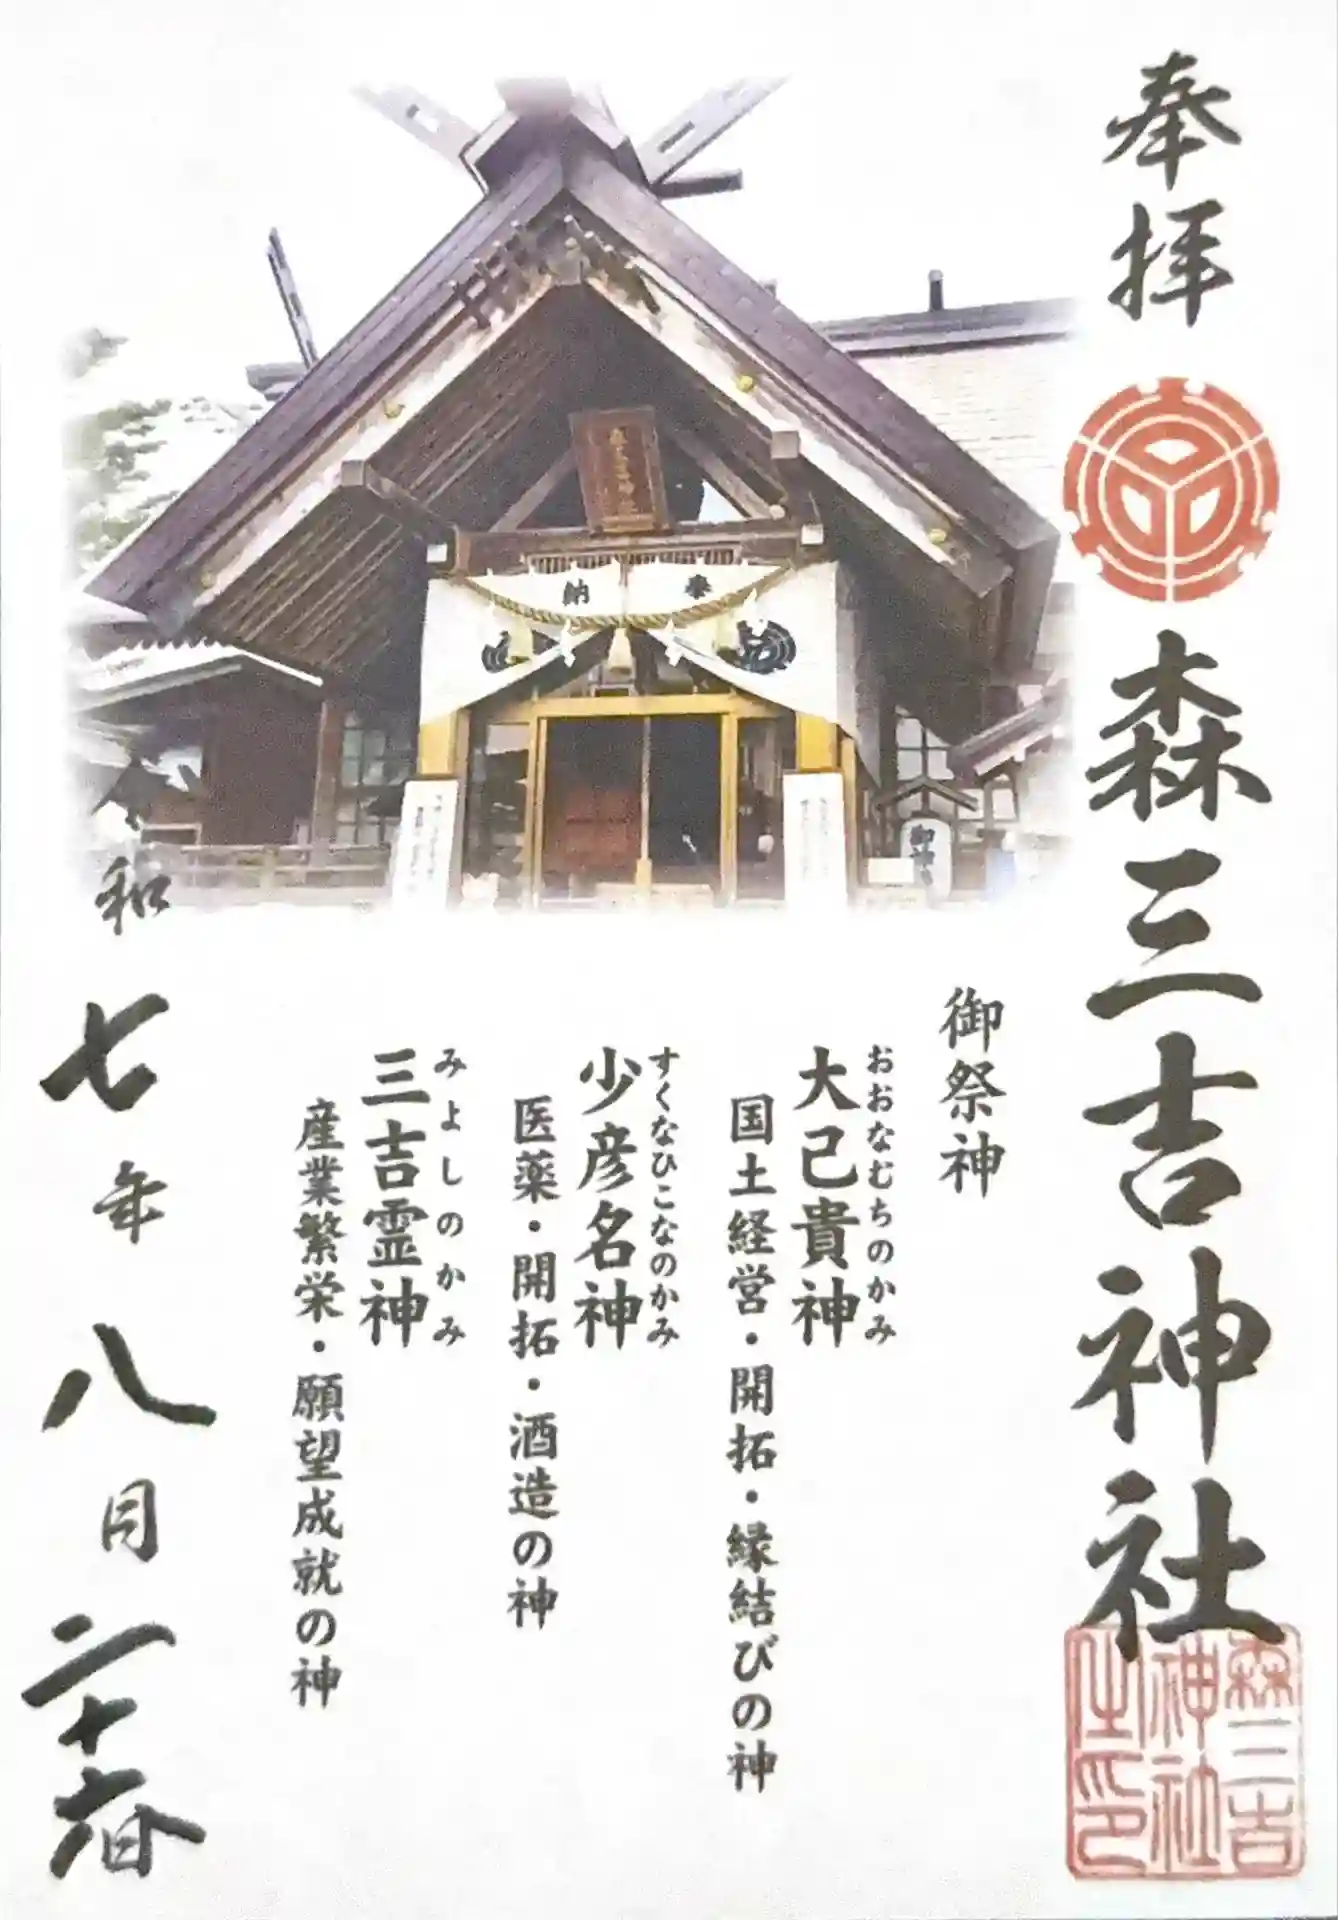 奉拝
森三吉神社
森三吉
神社
之印
奉納
御神
御祭神
おおなむちのかみ
大己貴神
国土経営・開拓・縁結びの神
すくなひこなのかみ
少彦名神
医薬・開拓・酒造の神
みよしのかみ
三吉霊神
産業繁栄・願望成就の神
令和七年八月二十六日